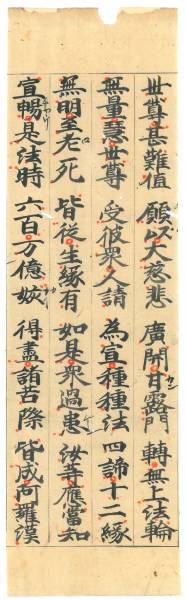 世尊甚難值 願以大慈悲 廣開甘露門 轉無上法輪
カン
無量慧世尊 受彼衆人請 為宣種種法 四諦十二緣
無明至老死 皆從生緣有 如是衆過患 汝等應當知
宣暢是法時 六百万億姟 得盡諸苦際 皆成阿羅漢